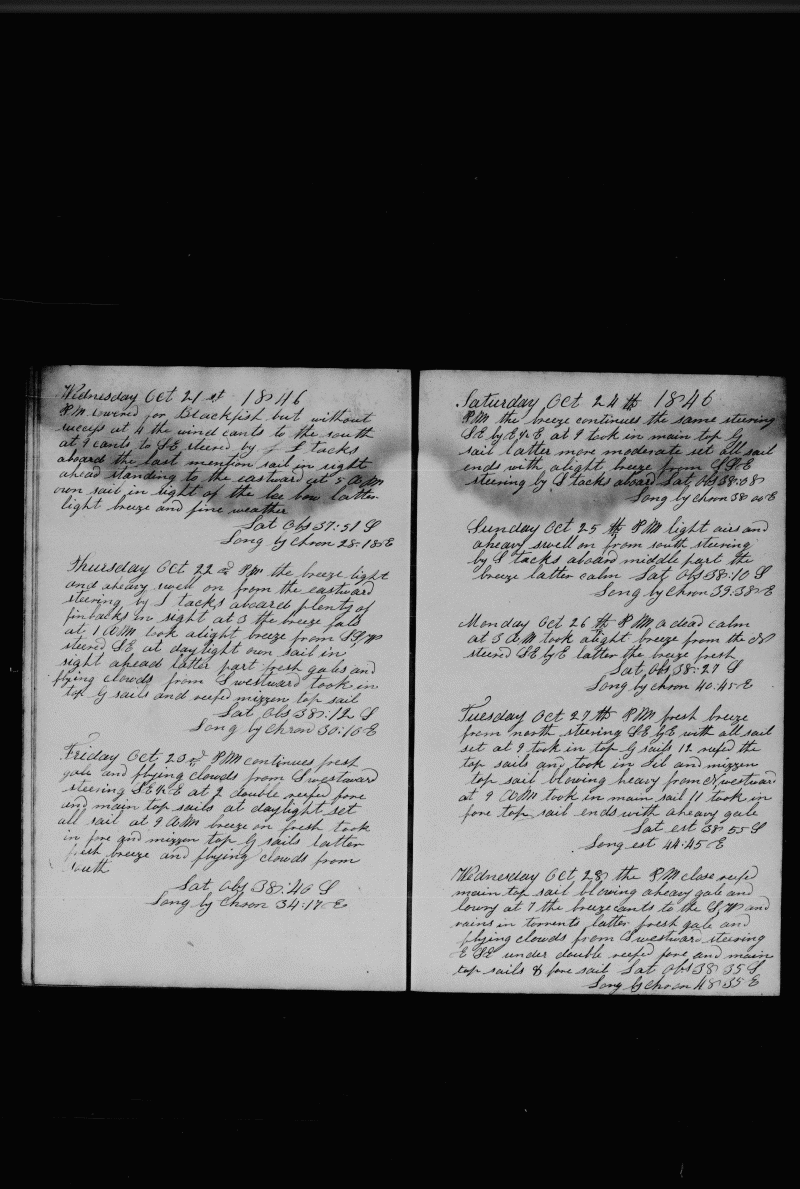 Wednesday Oct 21 st 1846
P.M. lowered for Blackfish but without
sucsess at 4 the wind cants to the south
at 9 cants to SE steered by S tacks
aboard the last mention sail in sight
ahead standing to the eastward at 5 A.M
own sail in sight of the lee bow latter
light breeze and fine weather
Lat Obs 37:51 S
Long by chron 28:18 E
Thursday Oct 22 d P.M the breeze light
and aheavy swell on from the eastward
steering by S tacks aboard plenty of
finbacks in sight at 3 the breeze fals
at 1 A.M took alight breeze from SSW
steered SE at daylight own sail in
sight ahead latter part fresh gales and
flying clowds from S westward took in
top G sails and reefed mizzen top sail
Lat Obs 38:12 S
Long by chron 30:16 E
Friday Oct 23 d P.M continues fresh
gale and flying clowds from S westward
steering SE½E at 2 double reefed fore
and main top sails at daylight set
all sail at 9 A.M breeze on fresh took
in fore and mizzen top G sails latter
fresh breeze and flying clowds from
south
Lat Obs 38:46 S
Long by chron 34:17 E
Saturday Oct 24 th 1846
P.M the breeze continues the same steering
SE by E½E at 9 took in main top G
sail latter more moderate set all sail
ends with alight breeze from SSE
steering by S tacks aboard Lat Obs 38:08
Long by chron 38 00 E
Sunday Oct 25 th P.M light airs and
aheavy swell on from south steering
by S tacks aboard middle part the
breeze latter calm Lat Obs 38:10 S
Long by chron 39:38 E
Monday Oct 26 th P.M a dead calm
at 3 A.M took alight breeze from the N
steered SE by E latter the breeze fresh
Lat Obs 38:27 S
Long by chron 40:45 E
Tuesday Oct 27 th P.M fresh breeze
from north steering SE by E with all sail
set at 9 took in top G sails 12 reefed the
top sails and took in Jib and mizzen
top sail blowing heavy from N westward
at 9 A.M took in main sail 11 took in
fore top sail ends with aheavy gale
Lat est 38 55 S
Long est 44:45 E
Wednesday Oct 28 the P.M close reefd
main top sail blowing aheavy gale and
lowry at 7 the breeze cants to the SW and
rains in torrents latter fresh gale and
flying clowds from S westward steering
E SE under double reefed fore and main
top sails & fore sail Lat Obs 38 35 S
Long by chron 48 35 E